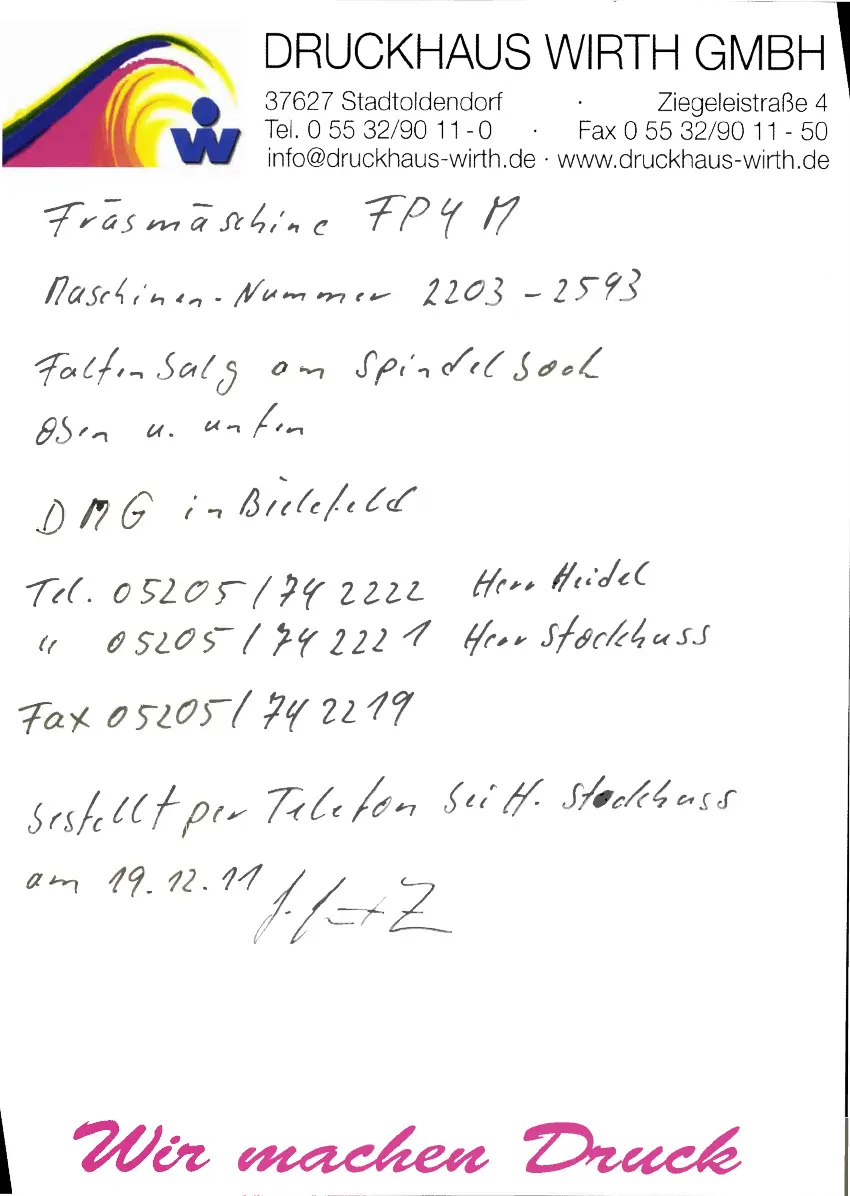 DRUCKHAUS WIRTH GMBH
37627 Stadtoldendorf · Ziegeleistraße 4
Tel. 0 55 32/90 11-0 · Fax 0 55 32/90 11 - 50
info@druckhaus-wirth.de · www.druckhaus-wirth.de
W
Fräsmaschine FP4M
Maschinen-Nummer 2203-2593
Faltenbalg am Spindelbock
oben u. unten
DMG in Bielefeld
Tel. 05205/74 2222 Herr Heidel
" 05205/74 2221 Herr Stockhuss
Fax 05205/74 2219
bestellt per Telefon bei H. Stockhuss
am 19.12.11
Wir machen Druck